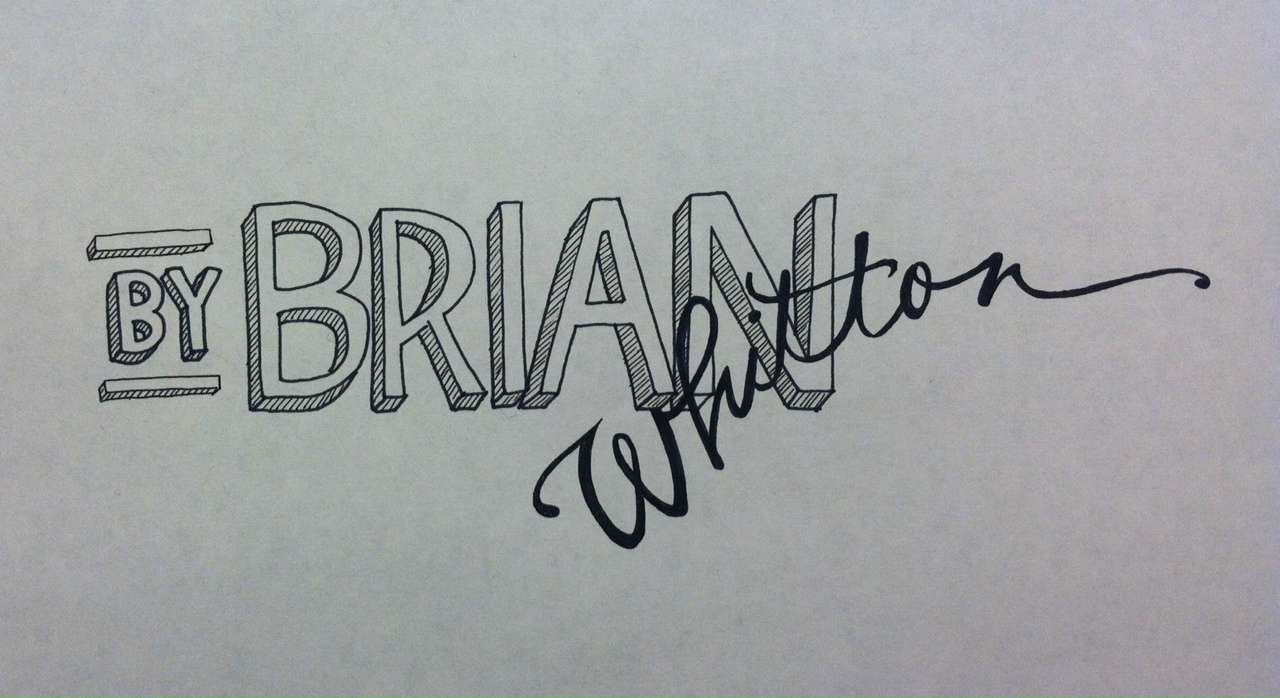 BY BRIAN
Whitton